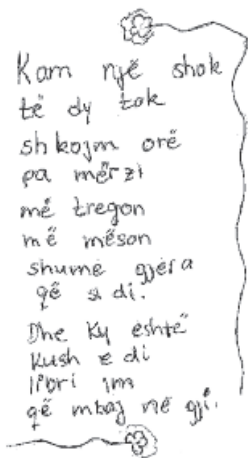 Kam një shok
të dy tok
shkojm orë
pa mërzi
më tregon
më mëson
shumë gjëra
që si di.
Dhe Ky është
Kush e di
libri im
që mbaj në gji.